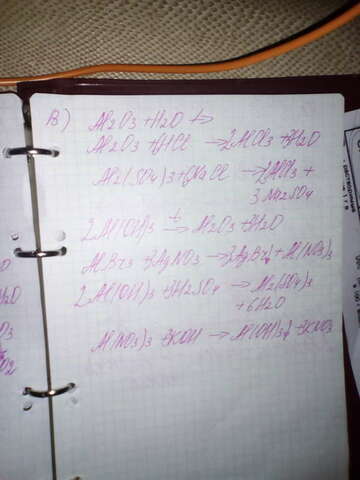 В) Al2O3 + H2O ↛
Al2O3 + 6HCl → 2AlCl3 + 3H2O
Al2(SO4)3 + 6NaCl → 2AlCl3 +
3Na2SO4
2Al(OH)3 t→ Al2O3 + 3H2O
AlBr3 + 3AgNO3 → 3AgBr↓ + Al(NO3)3
2Al(OH)3 + 3H2SO4 → Al2(SO4)3
+ 6H2O
Al(NO3)3 + 3KOH → Al(OH)3↓ + 3KNO3